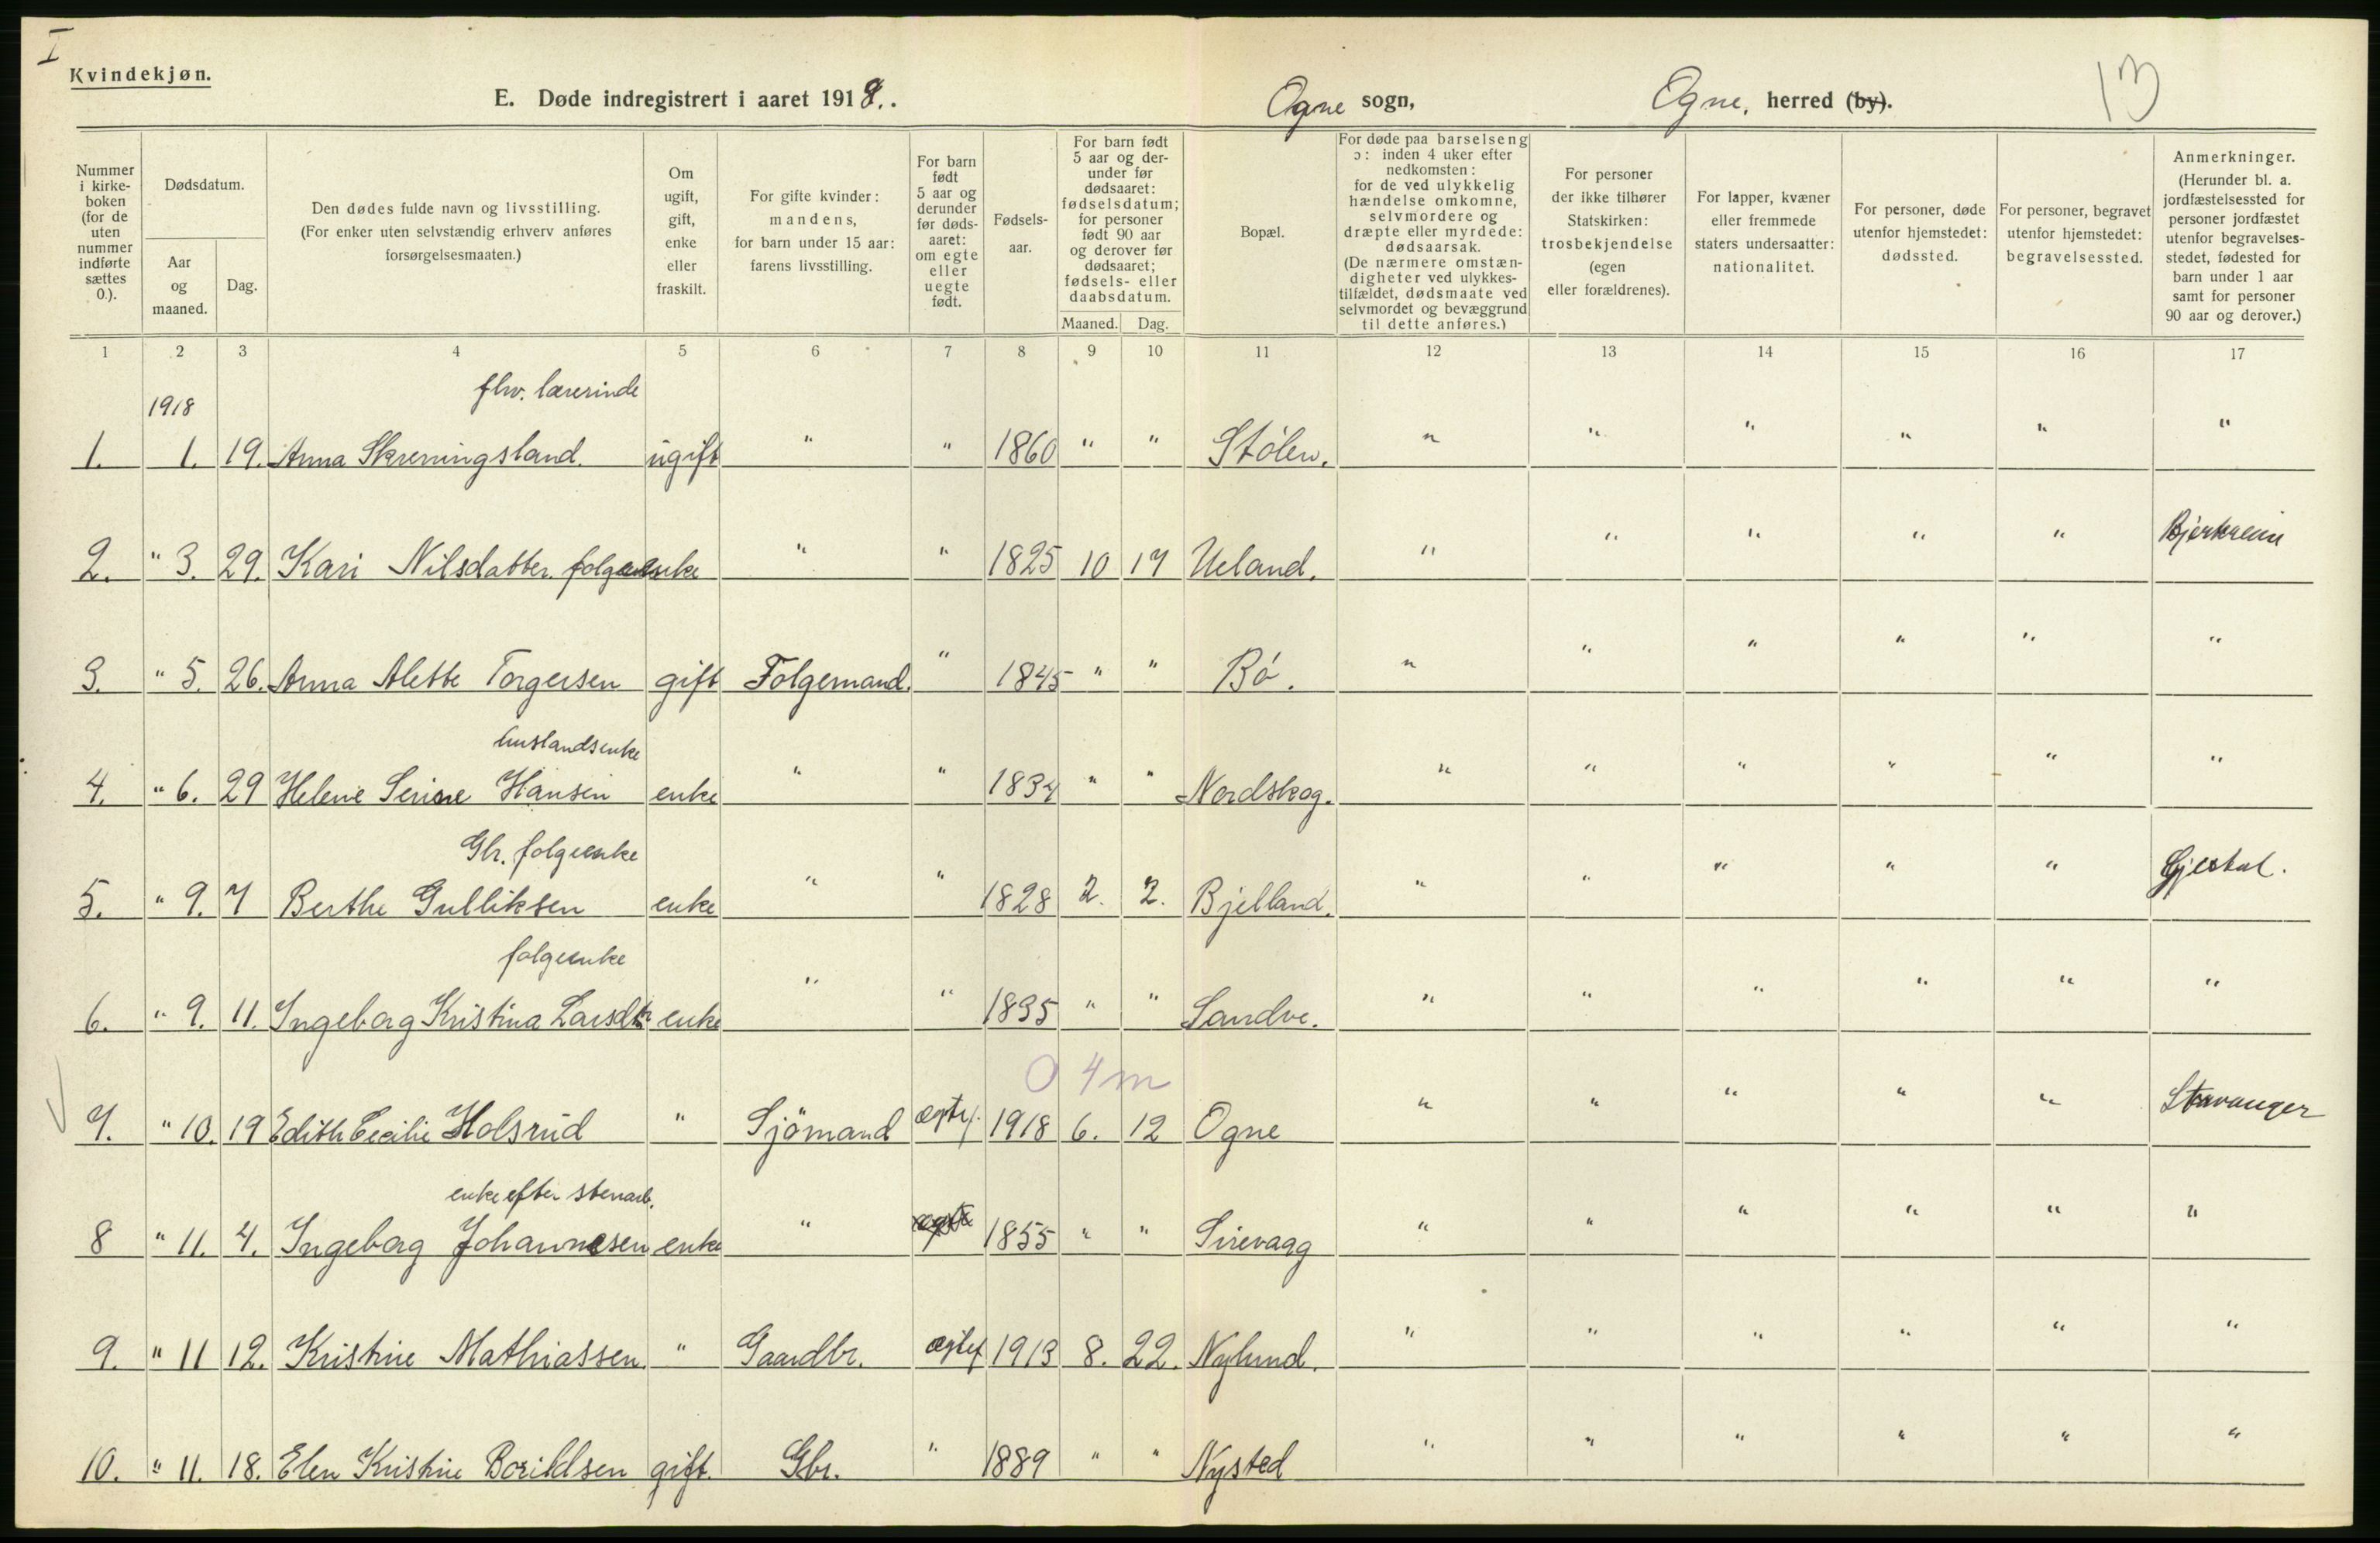 I
Kvindekjøn.
E. Døde indregistrert i aaret 1918. . Ogne sogn, Ogne, herred (by). 13
Nummer i kirke-boken (for de uten nummer indførte sættes 0.).
Dødsdatum.
Aar og maaned.
Dag.
Den dødes fulde navn og livsstilling.
(For enker uten selvstændig erhverv anføres
forsørgelsesmaaten.)
Om ugift, gift, enke eller fraskilt.
For gifte kvinder:
mandens,
for barn under 15 aar:
farens livsstilling.
For barn født 5 aar og derunder før døds-aaret: om egte eller uegte født.
Fødsels-aar.
For barn født 5 aar og der-under før dødsaaret: fødselsdatum; for personer født 90 aar og derover før dødsaaret; fødsels- eller daabsdatum.
Maaned. Dag.
Bopæl.
For døde paa barselseng
ɔ: inden 4 uker efter
nedkomsten:
for de ved ulykkelig
hændelse omkomne,
selvmordere og
dræpte eller myrdede:
dødsaarsak.
(De nærmere omstæn-
digheter ved ulykkes-
tilfældet, dødsmaate ved
selvmordet og bevæggrund
til dette anføres.)
For personer
der ikke tilhører
Statskirken:
trosbekjendelse
(egen
eller forældrenes).
For lapper, kvæner
eller fremmede
staters undersaatter:
nationalitet.
For personer, døde
utenfor hjemstedet:
dødssted.
For personer, begravet
utenfor hjemstedet:
begravelsessted.
Anmerkninger.
(Herunder bl. a.
jordfæstelsessted for
personer jordfæstet
utenfor begravelses-
stedet, fødested for
barn under 1 aar
samt for personer
90 aar og derover.)
1 2 3 4 5 6 7 8 9 10 11 12 13 14 15 16 17
1918 fhv. lærerinde
1. 1. 19. Anna Skreningsland. ugift " " 1860 " " Stølen. " " " " " "
2. " 3. 29. Kari Nilsdatter. folgeenke " " 1825 10 17 Ueland. " " " " " Bjerkreim
3. " 5. 26. Anna Alette Torgersen gift Folgemand. " 1845 " " Bø. " " " " " "
huslandsenke
4. " 6. 29 Helene Serine Hansen enke " " 1834 " " Nordskog. " " " " " "
Gbr. folgeenke
5. " 9. 7 Berthe Gulliksen enke " " 1828 2. 2. Bjelland. " " " " " Gjestal.
folgeenke
6. " 9. 11. Ingeborg Kristina Larsdtr enke " " 1835 " " Sandve. " " " " " "
0 4 m
7. " 10. 19 Edith Cecilie Holsrud " Sjömand ægtef. 1918 6. 12 Ogne " " " " " Stavanger
enke efter stenarb.
8 " 11. 4. Ingeborg Johannesen enke " 1855 " " Sirevaag " " " " " "
9. " 11 12. Kristine Mathiassen. " Gaardbr. ægtef 1913 8. 22. Nylund. " " " " " "
10. " 11. 18. Elen Kristine Borildsen gift. Gbr. " 1889 " " Nysted " " " " " "